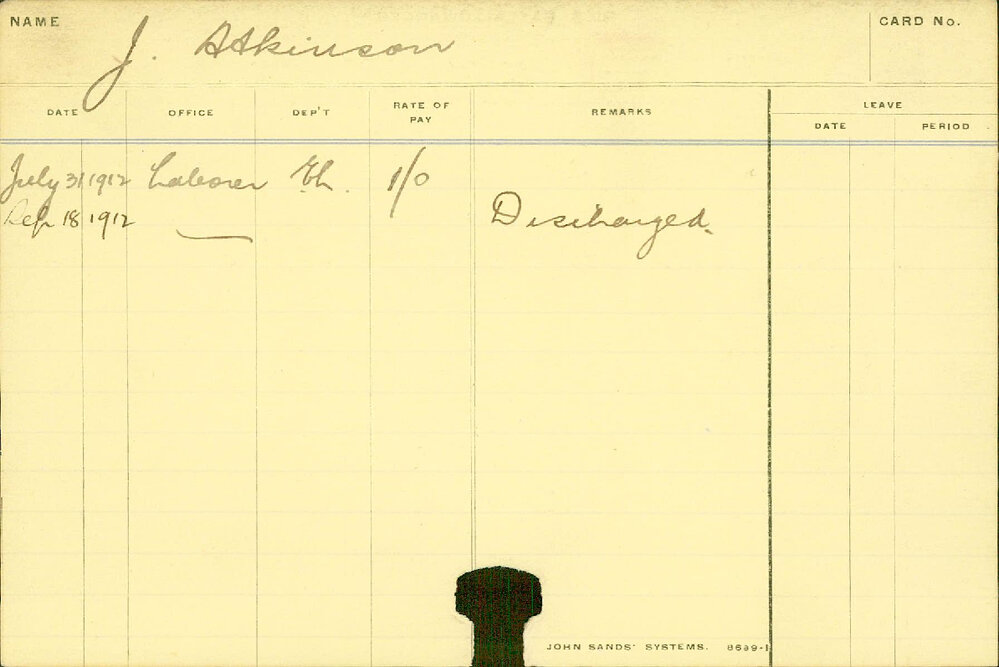 NAME J. Atkinson CARD No.
DATE OFFICE DEP'T RATE OF PAY REMARKS LEAVE
DATE PERIOD
July 31 1912 Laborer 1/0
Sep 18 1912 — Discharged.
JOHN SANDS' SYSTEMS. 8699-1